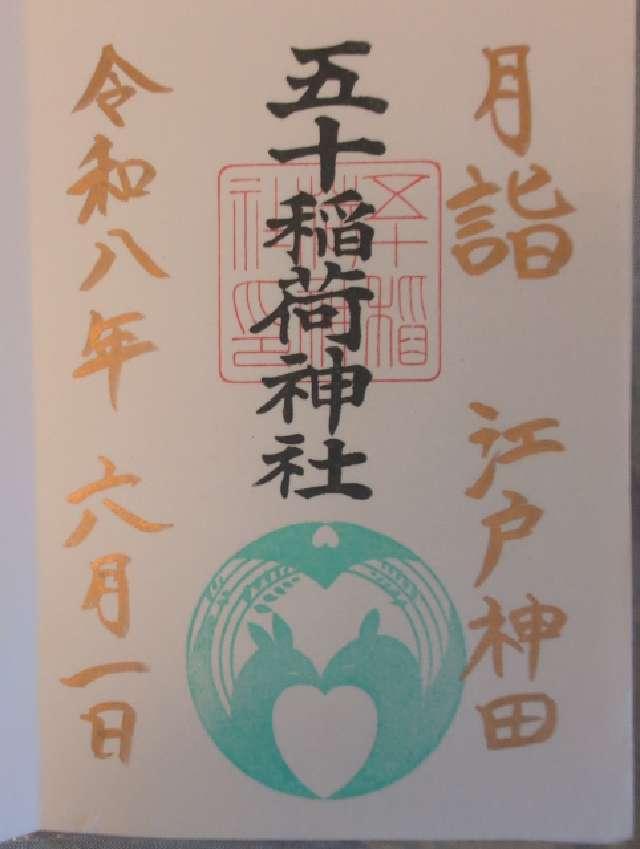 月詣 江戸神田
五十稲荷神社
五十稲荷神社印
令和八年 六月一日